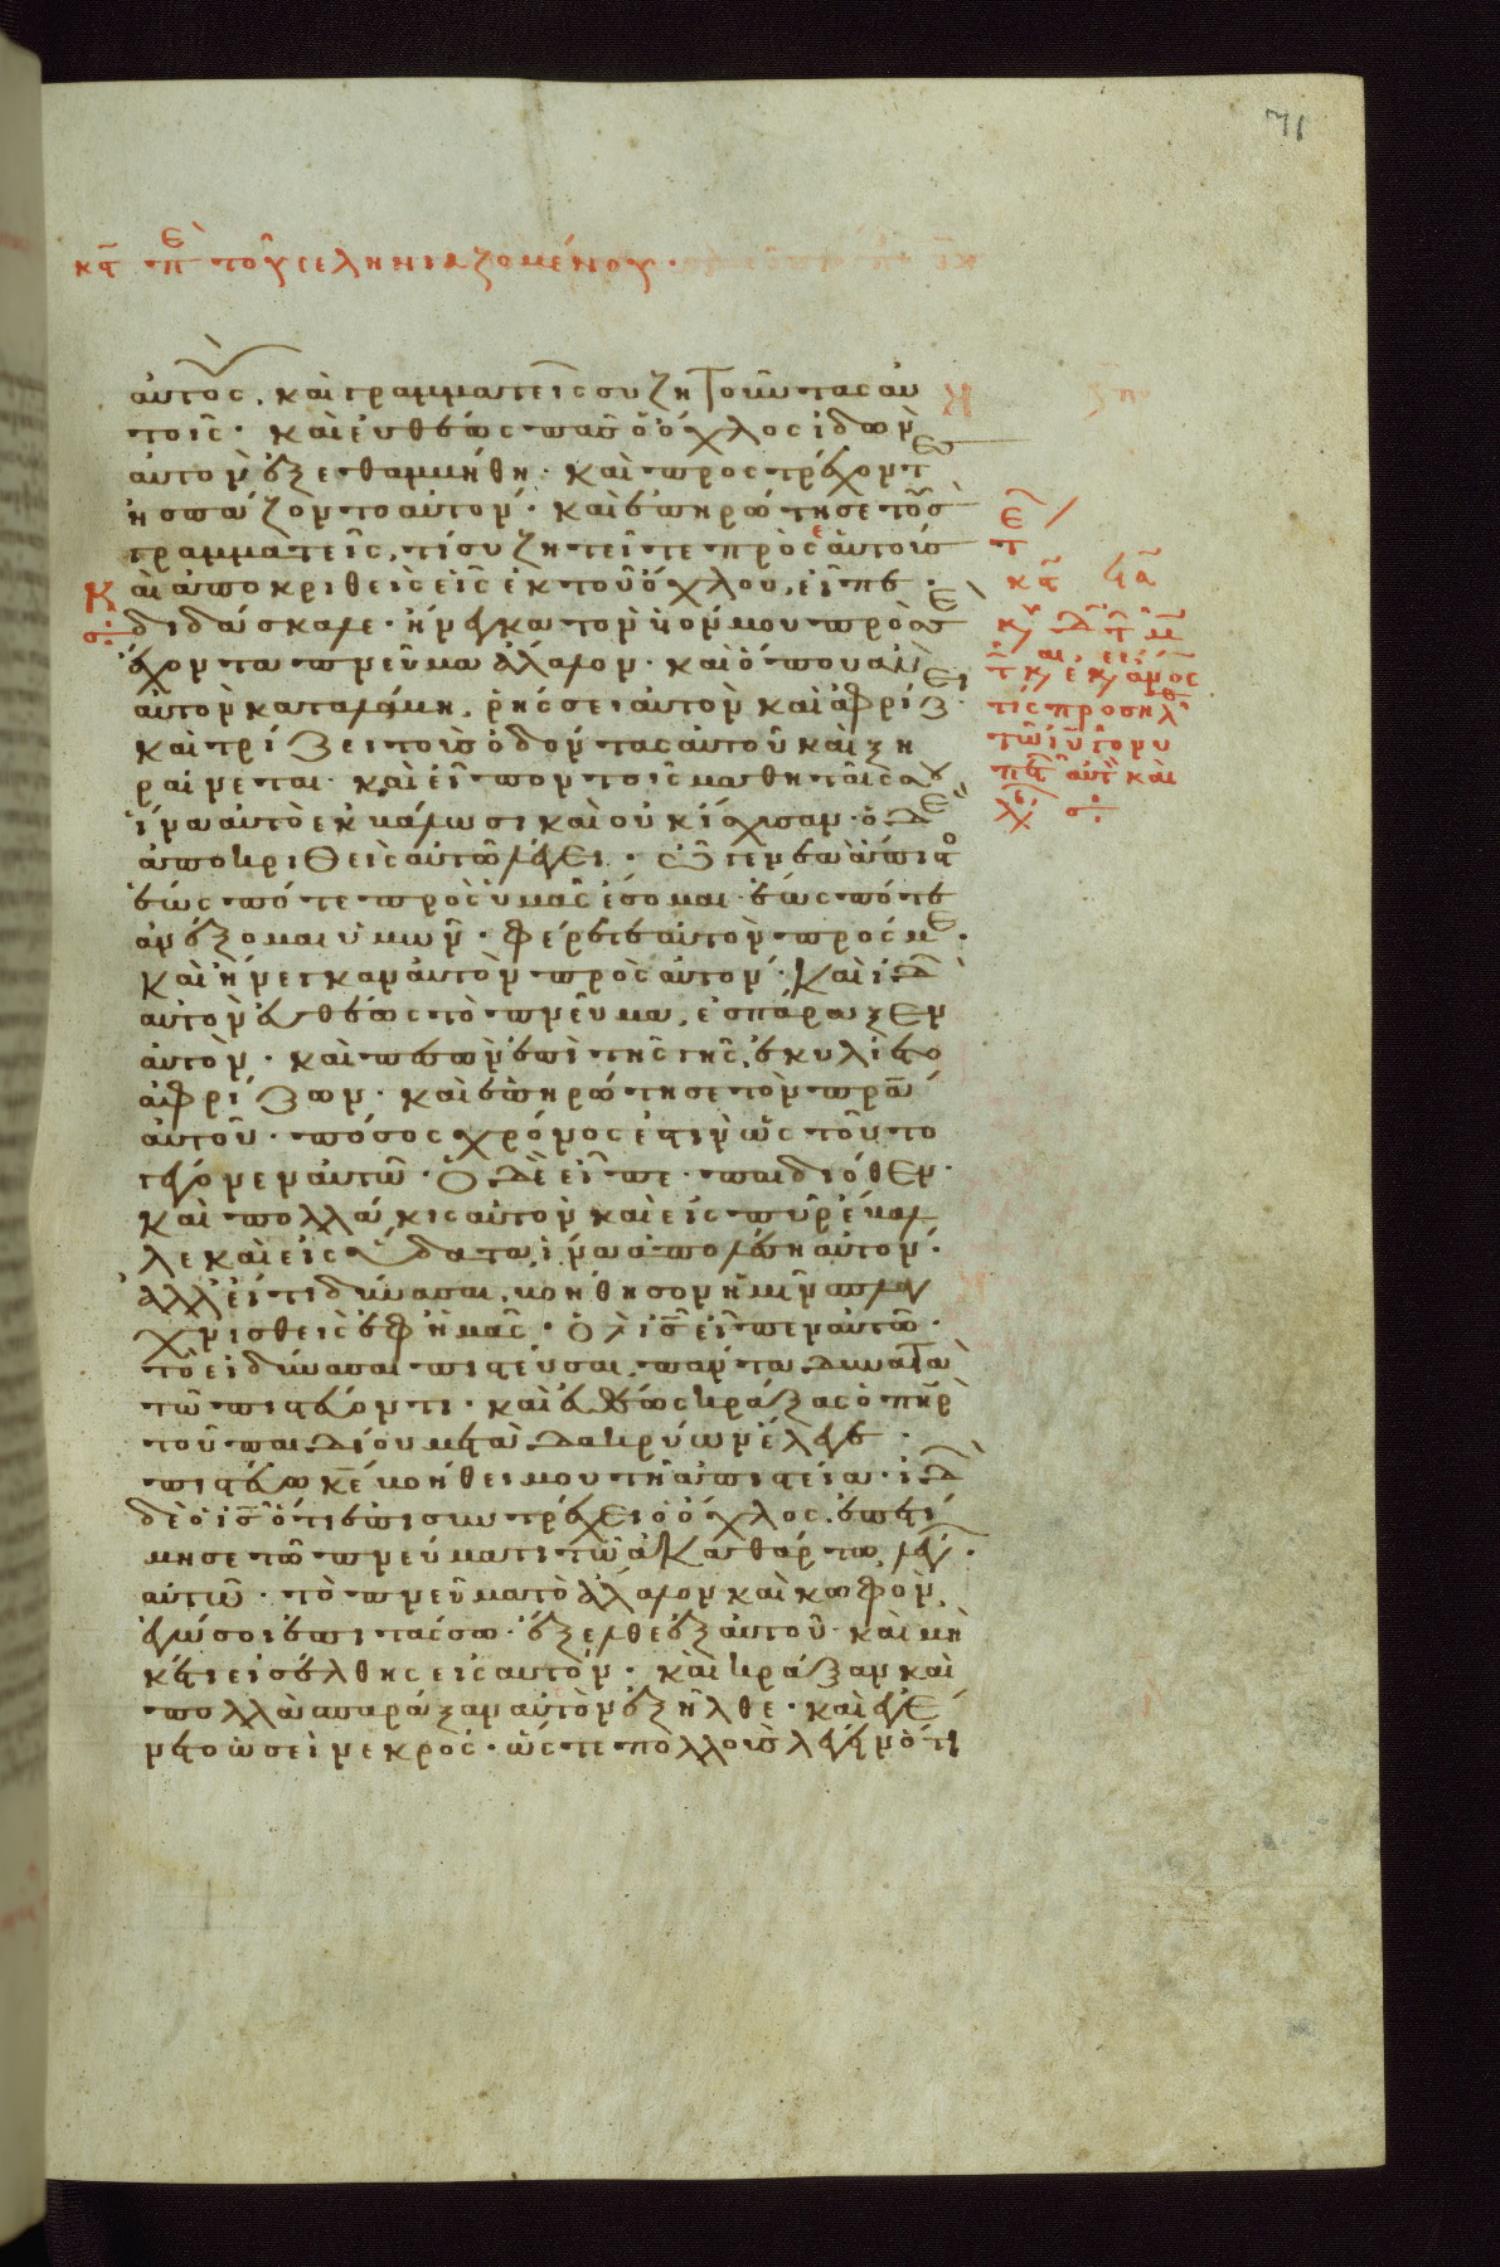 71
κε περὶ τοῦ σεληνιαζομένου.
αὐτοὺς. καὶ γραμματεῖς συζητοῦντας αὐ
τοῖς· καὶ εὐθέως πᾶς ὁ ὄχλος ἰδὼν
αὐτὸν ἐξεθαμμήθη· καὶ προστρέχοντες
ἠσπάζοντο αὐτόν· καὶ ἐπηρώτησε τοὺς
γραμματεῖς, τί συζητεῖτε πρὸς ἑαυτούς
Καὶ ἀποκριθεὶς εἷς ἐκ τοῦ ὄχλου, εἶπε·
διδάσκαλε· ἤνεγκα τὸν υἱόν μου πρὸς σὲ
ἔχοντα πνεῦμα ἄλαλον· καὶ ὅπου ἂν
αὐτὸν καταλάβη, ῥήσσει αὐτὸν καὶ ἀφρίζει·
καὶ τρίζει τοὺς ὀδόντας αὐτοῦ καὶ ξη
ραίνεται· καὶ εἶπον τοῖς μαθηταῖς σου
ἵνα αὐτὸ ἐκβάλωσι καὶ οὐκ ἴσχυσαν· ὁ δὲ
ἀποκριθεὶς αὐτῶ λέγει· ὦ γενεὰ ἄπιστο
ἕως πότε πρὸς ὑμᾶς ἔσομαι· ἕως πότε
ἀνέξομαι ὑμῶν· φέρετε αὐτὸν πρός με·
καὶ ἤνεγκαν αὐτὸν πρὸς αὐτόν· καὶ ἰδὼν
αὐτὸν εὐθέως τὸ πνεῦμα, ἐσπάραξεν
αὐτὸν· καὶ πεσὼν ἐπὶ τῆς γῆς, ἐκυλίετο
ἀφρίζων· καὶ ἐπηρώτησε τὸν πρα
αὐτοῦ· πόσος χρόνος ἐστὶν ὡς τοῦτο
γέγονεν αὐτῶ· ὁ δὲ εἶπε· παιδιόθεν·
καὶ πολλάκις αὐτὸν καὶ εἰς πῦρ ἔβαλ
λε καὶ εἰς ὕδατα, ἵνα ἀπολέση αὐτόν·
ἀλλ' εἴ τι δύνασαι, βοήθησον ἡμῖν σπλαγ
χνισθεὶς ἐφ' ἡμᾶς· ὁ δὲ ις εἶπεν αὐτῶ·
τὸ εἰ δύνασαι πιστεῦσαι, πάντα δυνατὰ
τῶ πιστεύοντι· καὶ εὐθέως κράξας ὁ πηρ
τοῦ παιδίου μετὰ δακρύων ἔλεγε·
πιστεύω κε βοήθει μου τῆ ἀπιστεία· ἰδὼν
δὲ ὁ ις ὅτι ἐπισυντρέχει ὁ ὄχλος, ἐπετί
μησε τῶ πνεύματι τῶ ἀκαθάρτω λέγων·
αὐτῶ· τὸ πνεῦμα τὸ ἄλαλον καὶ κωφὸν,
ἐγώ σοι ἐπιτάσσω· ἔξελθε ἐξ αὐτοῦ· καὶ μὴ
κέτι εἰσέλθης εἰς αὐτόν· καὶ κράξαν καὶ
πολλὰ σπαράξαν αὐτὸν ἐξῆλθε· καὶ ἐγέ
νετο ὡσεὶ νεκρός· ὥστε πολλοὺς λέγειν ὅτι